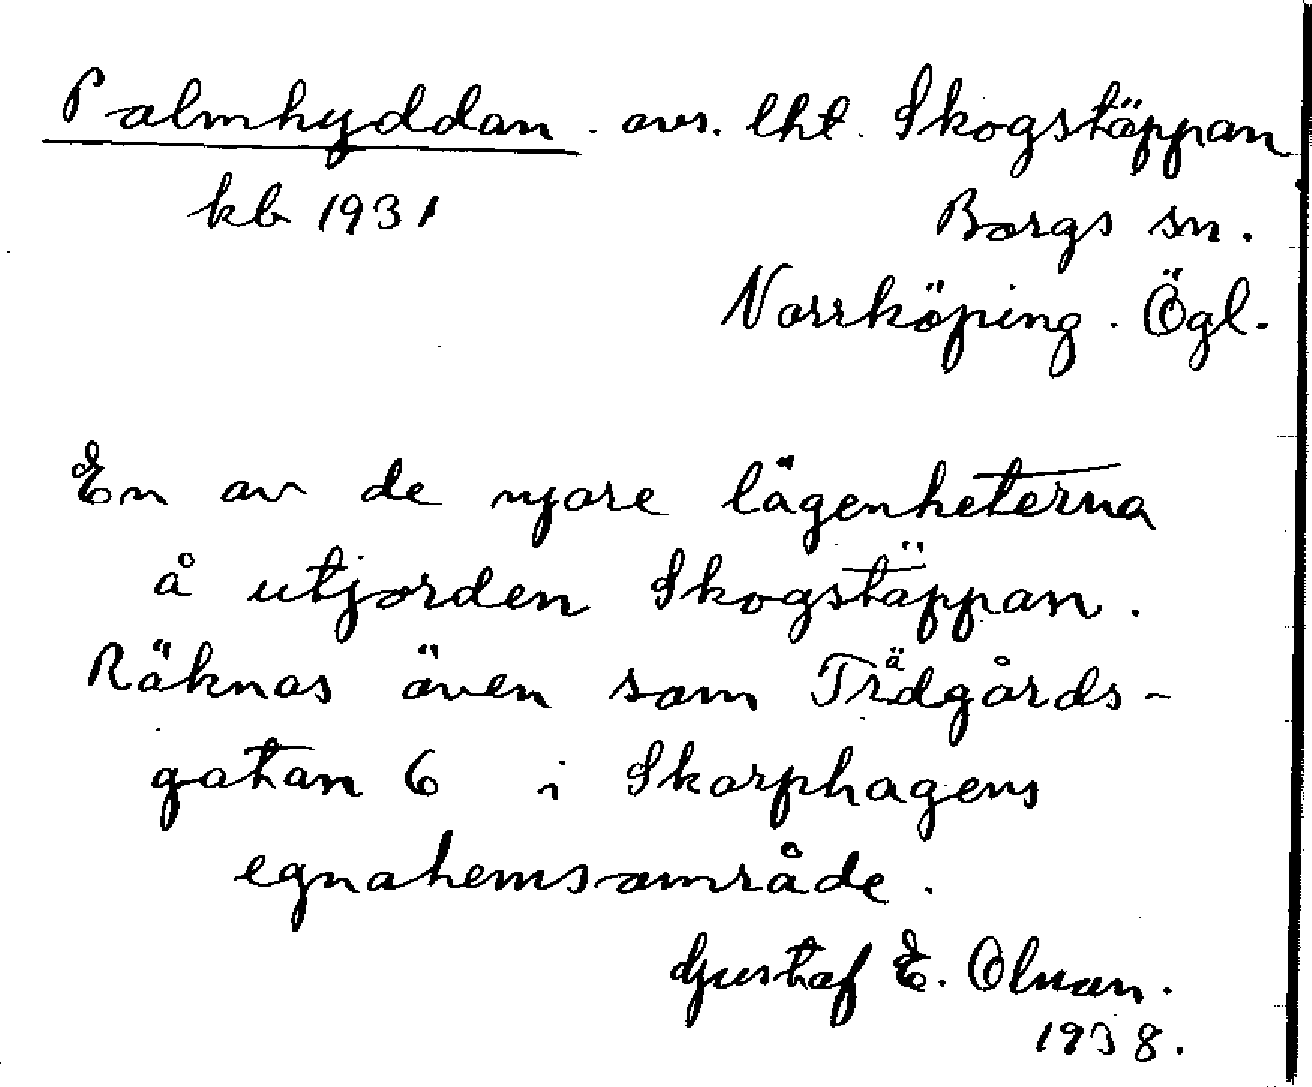 Palmhyddan. avs. lht. Skogstäppan
kb 1931 Borgs sn.
Norrköping. Ögl.
En av de nyare lägenheterna
å utjorden Skogstäppan.
Räknas även som Trädgårds-
gatan 6 i Skarphagens
egnahemsområde.
Gustaf E. Olman.
1938.